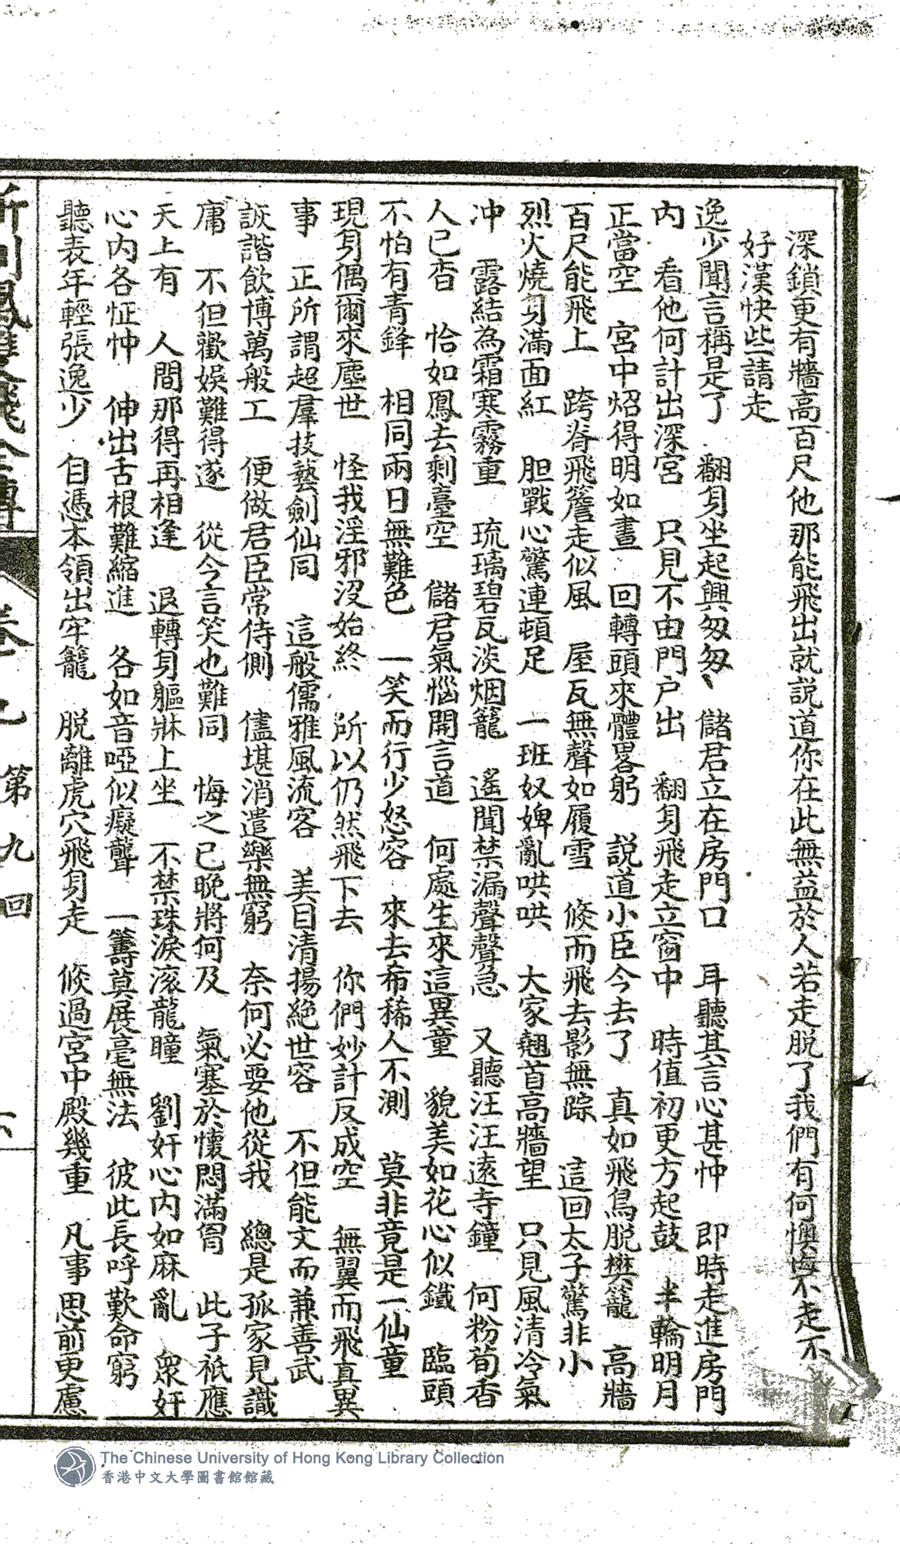 深鎖更有牆高百尺他那能飛出就説道你在此無益於人若走脱了我們有何懊悔不走不
好漢快些請走
逸少聞言稱是了　翻身坐起興匆匆　儲君立在房門口　耳聽其言心甚忡　即時走進房門
内　看他何計出深宮　只見不由門户出　翻身飛走立窗中　時值初更方起鼓　半輪明月
正當空　宮中炤得明如晝　回轉頭來體畧躬　説道小臣今去了　真如飛鳥脱樊籠　高牆
百尺能飛上　跨脊飛簷走似風　屋瓦無聲如履雪　倏而飛去影無踪　這回太子驚非小
烈火燒身滿面紅　胆戰心驚連頓足　一班奴婢亂哄哄　大家翹首高牆望　只見風清冷氣
冲　露結為霜寒霧重　琉璃碧瓦淡烟籠　遙聞禁漏聲聲急　又聽汪汪遠寺鐘　何粉荀香
人已杳　恰如鳳去剩臺空　儲君氣惱開言道　何處生來這異童　貌美如花心似鐵　臨頭
不怕有青鋒　相同兩日無難色　一笑而行少怒容　來去希稀人不測　莫非竟是一仙童
現身偶爾來塵世　怪我淫邪没始終　所以仍然飛下去　你們妙計反成空　無翼而飛真異
事　正所謂超羣技藝劍仙同　這般儒雅風流客　美目清揚絶世容　不但能文而兼善武
詼諧飲博萬般工　便做君臣常侍側　儘堪消遣藥無躬　奈何必要他從我　總是孤家見識
庸　不但歡娛難得遂　從今言笑也難同　悔之已晚將何及　氣塞於懷悶滿胷　此子祇應
天上有　人間那得再相逢　退轉身軀牀上坐　不禁珠淚滚龍瞳　劉奸心内如麻亂　衆奸
心内各怔忡　伸出舌根難縮進　各如音啞似癡聾　一籌莫展毫無法　彼此長呼歎命窮
聽表年輕張逸少　自憑本領出牢籠　脱離虎穴飛身走　倏過宮中殿幾重　凡事思前更慮
新刻鳳雙飛全傳　卷九　第九回　六
The Chinese University of Hong Kong Library Collection
香港中文大學圖書館館藏